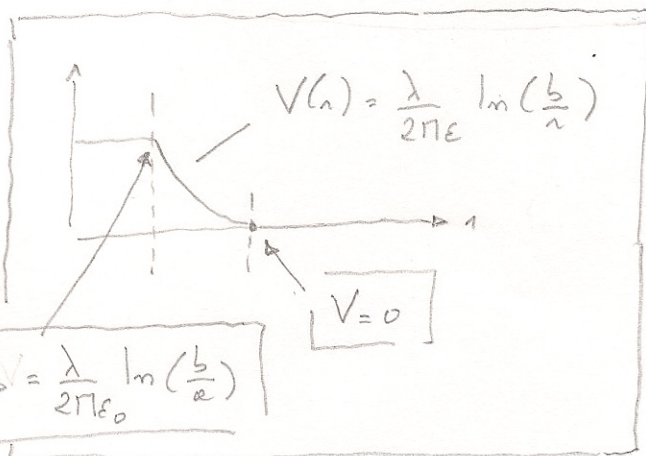 V(r) = λ/2πε ln(b/r)
r
V = 0
V = λ/2πε₀ ln(b/a)